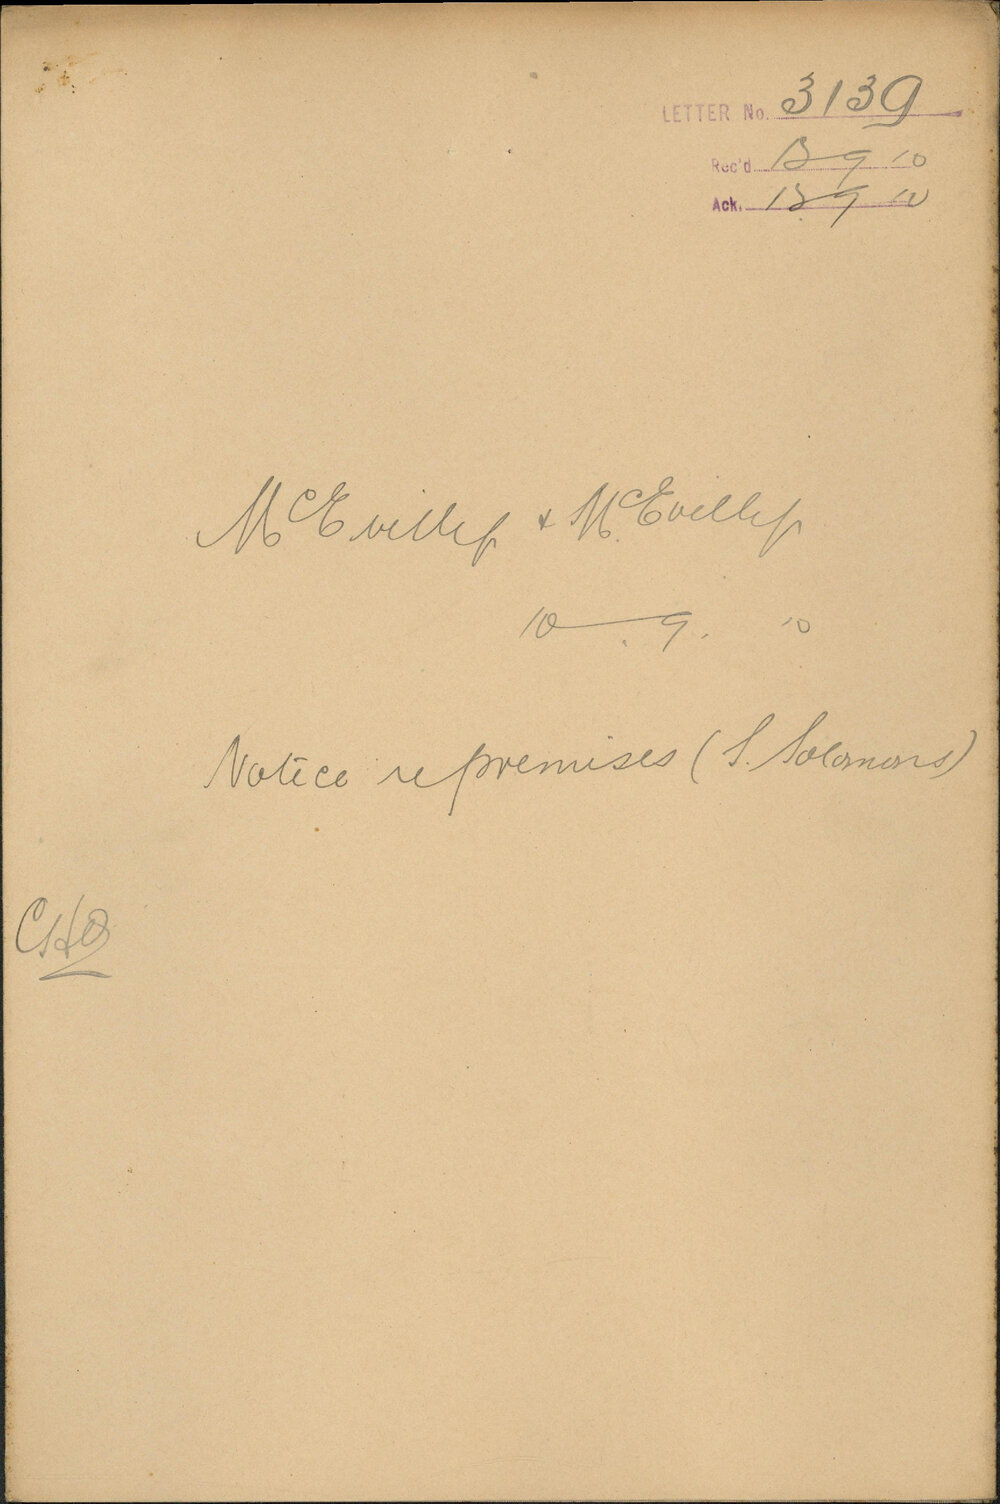 LETTER No. 3139
Rec'd 13 9 10
Ack. 13 9 10
McEvilly & McEvilly
10 9. 10
Notice re premises (S. Solomons)